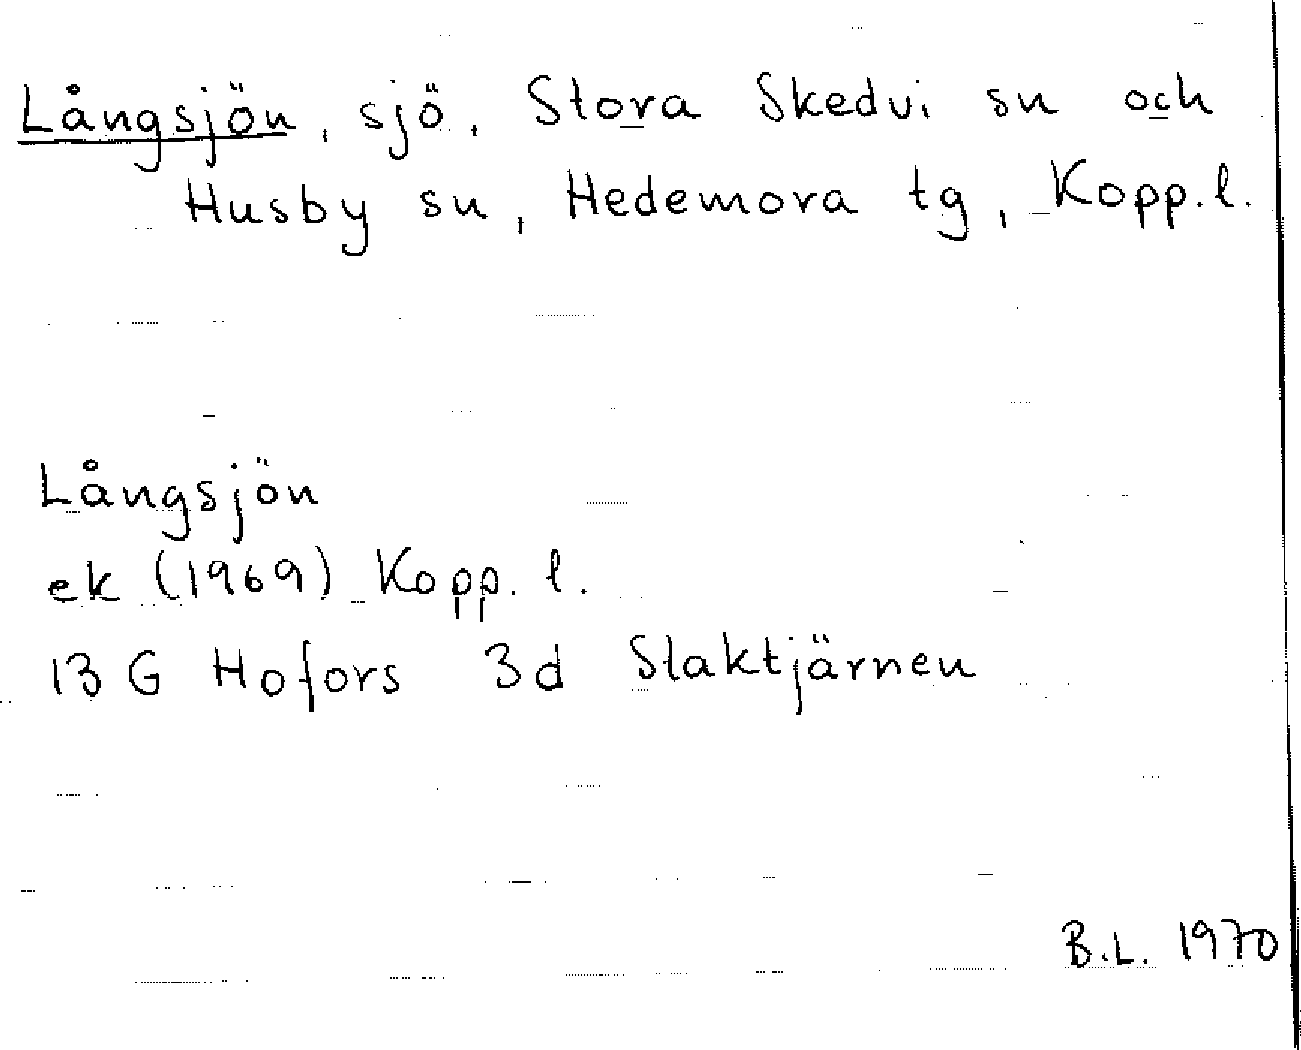 Långsjön, sjö, Stora Skedvi sn och
Husby sn, Hedemora tg, Kopp.l.
Långsjön
ek (1969) Kopp. l.
13 G Hofors 3d Slaktjärnen
B.L. 1970